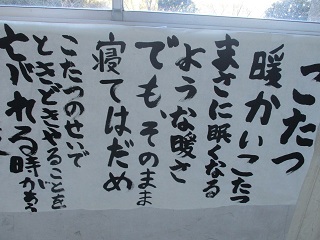 こたつ
暖かいこたつ
まさに眠くなる
ような暖さ
でも、そのまま
寝てはだめ
こたつのせいで
ときどきやることを
さがれる時がある